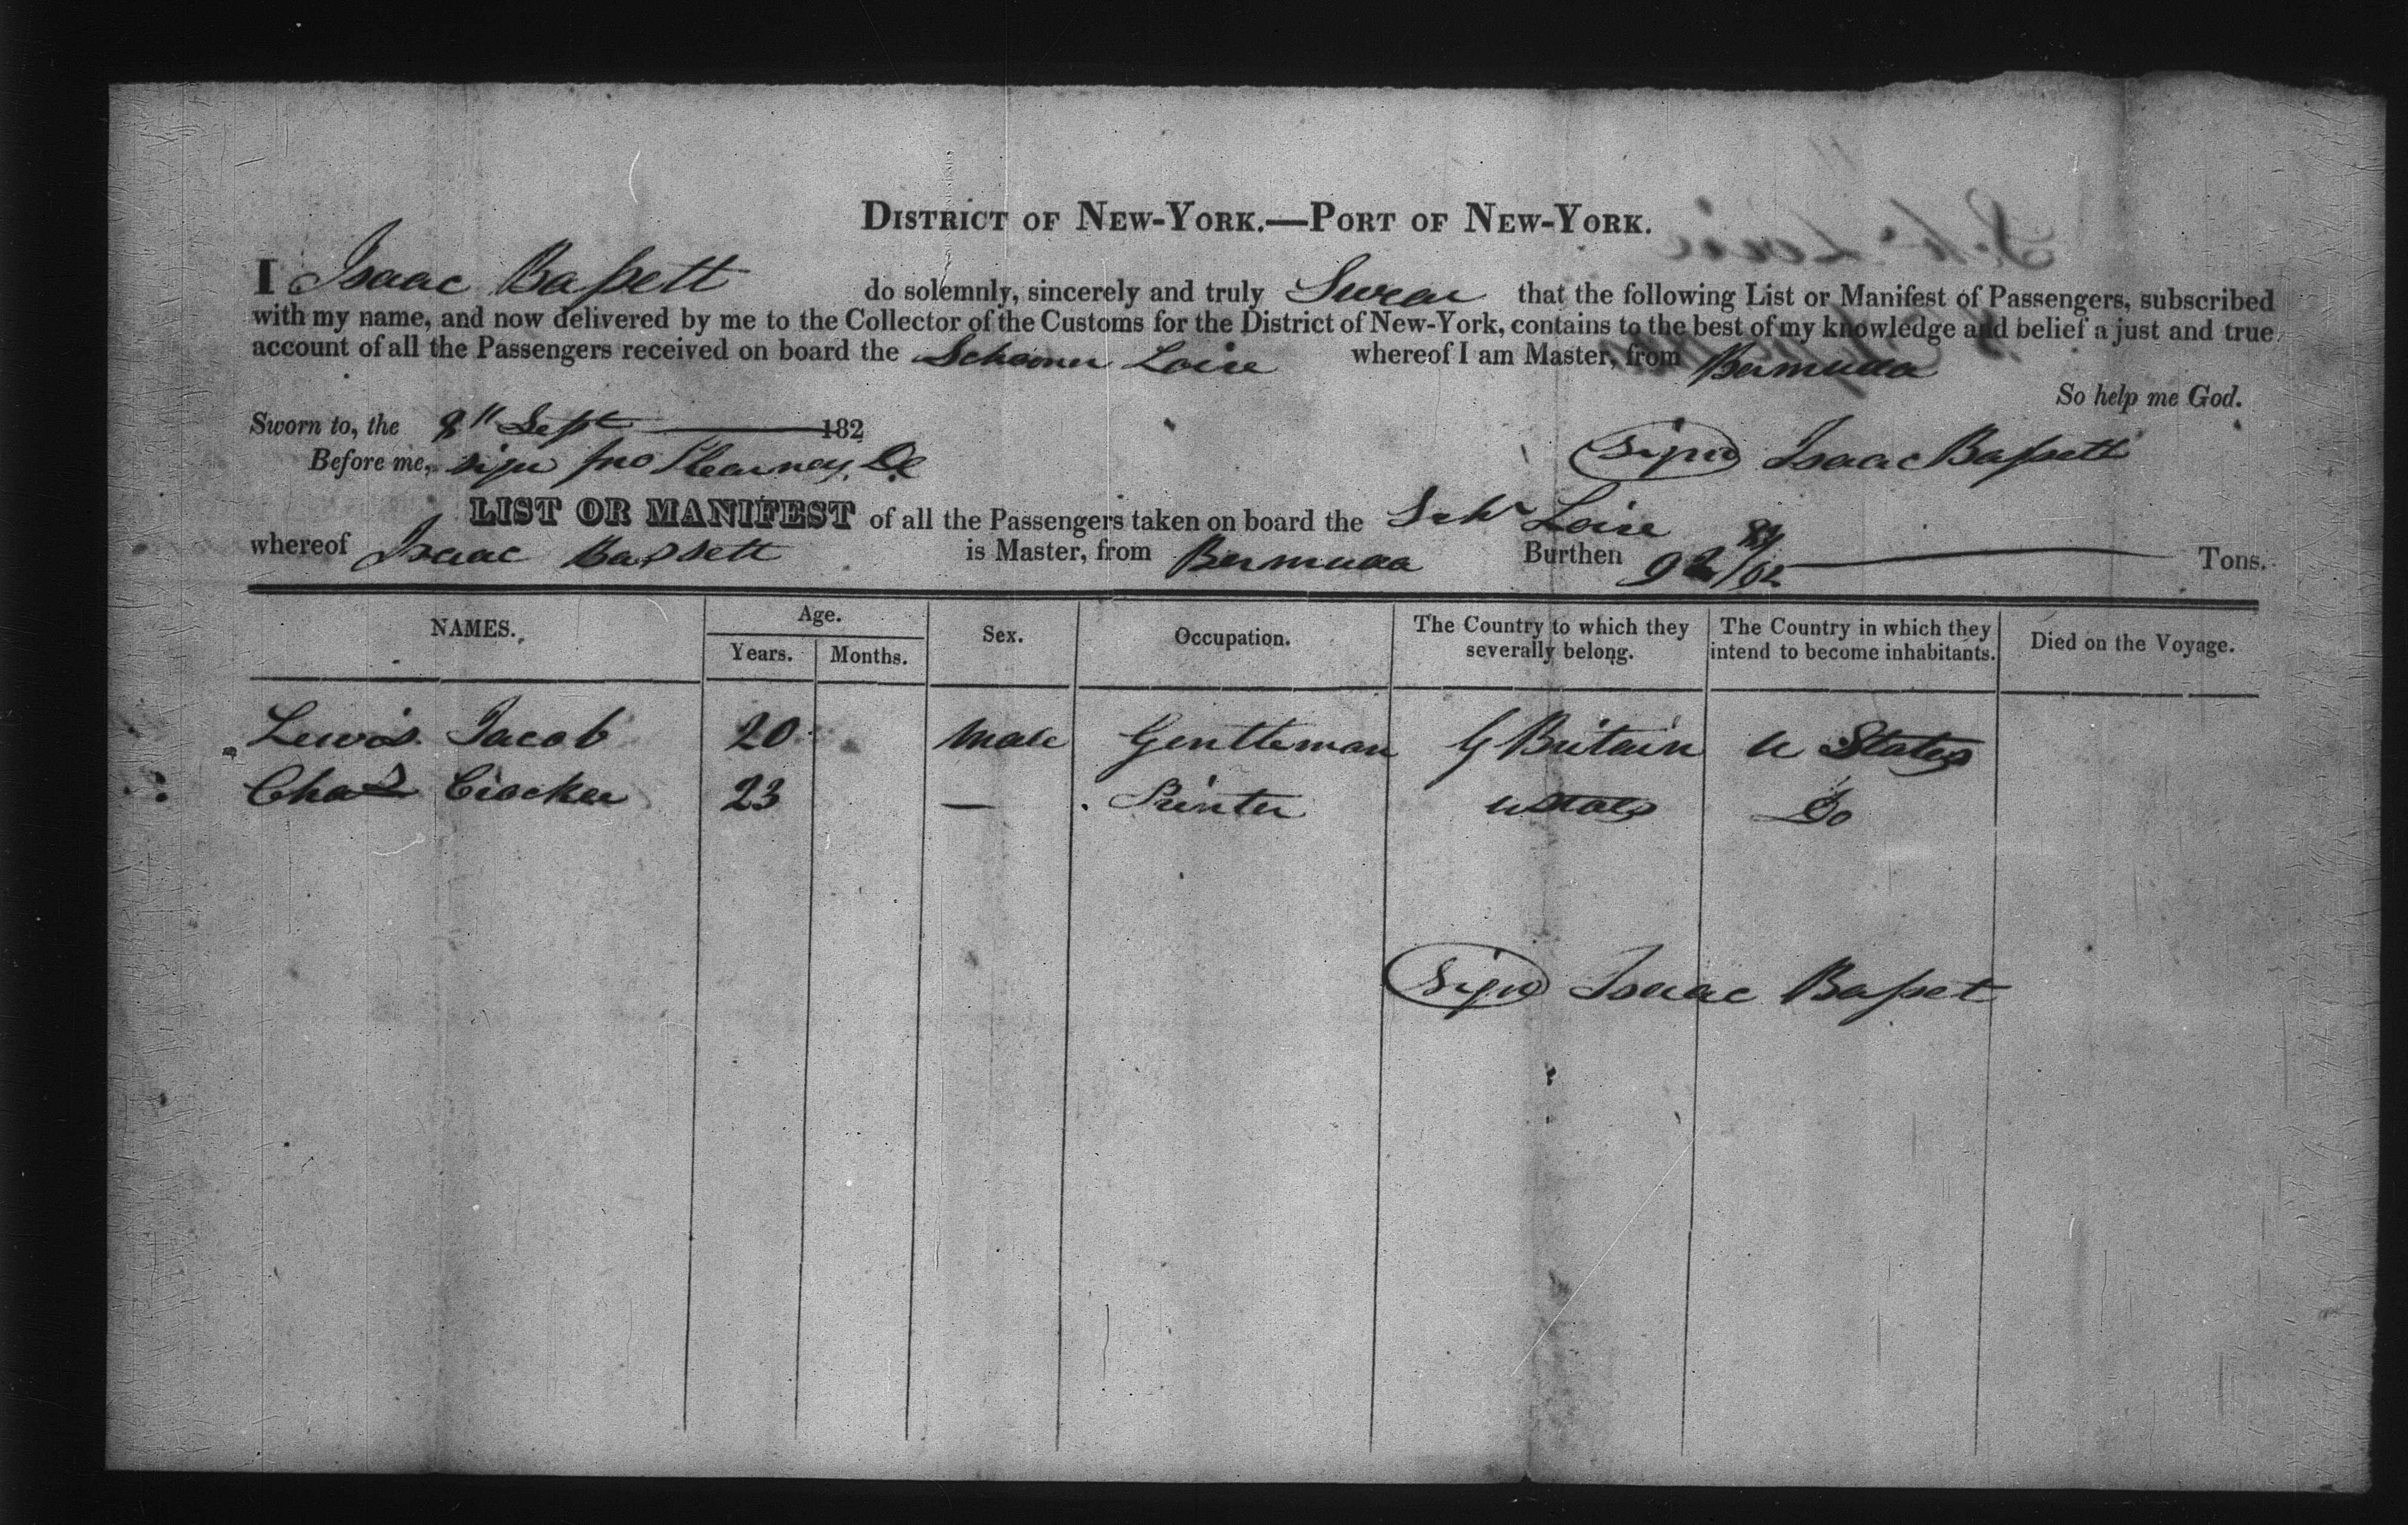 DISTRICT OF NEW-YORK.—PORT OF NEW-YORK.
I Isaac Bassett do solemnly, sincerely and truly Swear that the following List or Manifest of Passengers, subscribed
with my name, and now delivered by me to the Collector of the Customs for the District of New-York, contains to the best of my knowledge and belief a just and true
account of all the Passengers received on board the Schooner Loire whereof I am Master, from Bermuda
So help me God.
Sworn to, the 8" Sept 182
Before me, sign Jno Kearney, DC
(Sign) Isaac Bassett
LIST OR MANIFEST of all the Passengers taken on board the Schr Loire
whereof Isaac Bassett is Master, from Bermuda Burthen 92 Tons.
NAMES. Age. Years. Months. Sex. Occupation. The Country to which they severally belong. The Country in which they intend to become inhabitants. Died on the Voyage.
Lewis Jacob 20 Male Gentleman G Britain U States
Chas Crocker 23 — Printer U States Do
(Sign) Isaac Basset